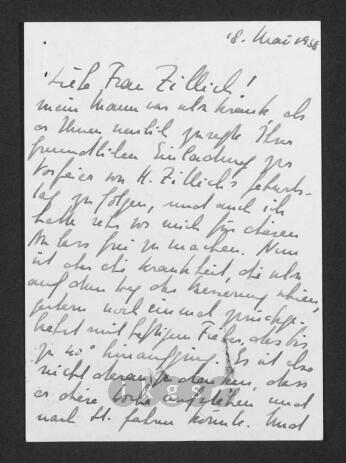 18. Mai 1958
Liebe Frau Zillich!
mein Mann war schon krank, als
er Ihnen neulich zusagte Ihrer
freundlichen Einladung zur
Vorfeier von H. Zillichs Geburts-
tag zu folgen, und auch ich
hatte vor mich für diesen
Anlass frei zu machen. Nun
ist aber die Krankheit, die schon
auf dem Weg der Besserung schien,
gestern noch einmal zurückge-
kehrt mit heftigem Fieber, das bis
zu 40° hinaufging. Es ist also
nicht daran zu denken, dass
er diese Woche aufstehen und
nach St. fahren könnte. Und